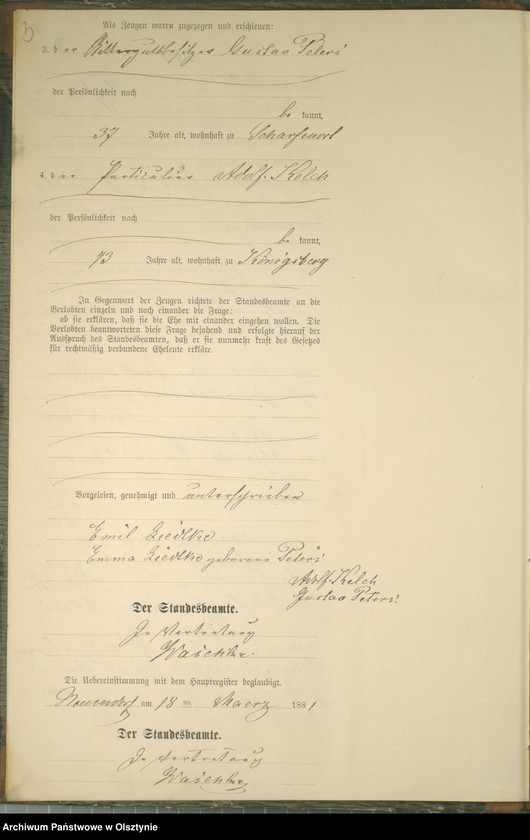 3
Als Zeugen waren zugezogen und erschienen:
3. der Rittergutsbesitzer Gustav Peters
der Persönlichkeit nach
be kannt,
37 Jahre alt, wohnhaft zu Scharfenort
4. der Partikulier Adolf Kelch
der Persönlichkeit nach
be kannt,
73 Jahre alt, wohnhaft zu Königsberg
In Gegenwart der Zeugen richtete der Standesbeamte an die
Verlobten einzeln und nach einander die Frage:
ob sie erklären, daß sie die Ehe mit einander eingehen wollen. Die
Verlobten beantworteten diese Frage bejahend und erfolgte hierauf der
Ausspruch des Standesbeamten, daß er sie nunmehr kraft des Gesetzes
für rechtmäßig verbundene Eheleute erkläre.
Vorgelesen, genehmigt und unterschrieben
Emil Liedtke
Emma Liedtke geborene Peters
Adolf Kelch
Gustav Peters.
Der Standesbeamte.
In Vertretung
Waschke.
Die Uebereinstimmung mit dem Hauptregister beglaubigt.
am 18 ten Maerz 1881
Der Standesbeamte.
In Vertretung
Waschke
Archiwum Państwowe w Olsztynie